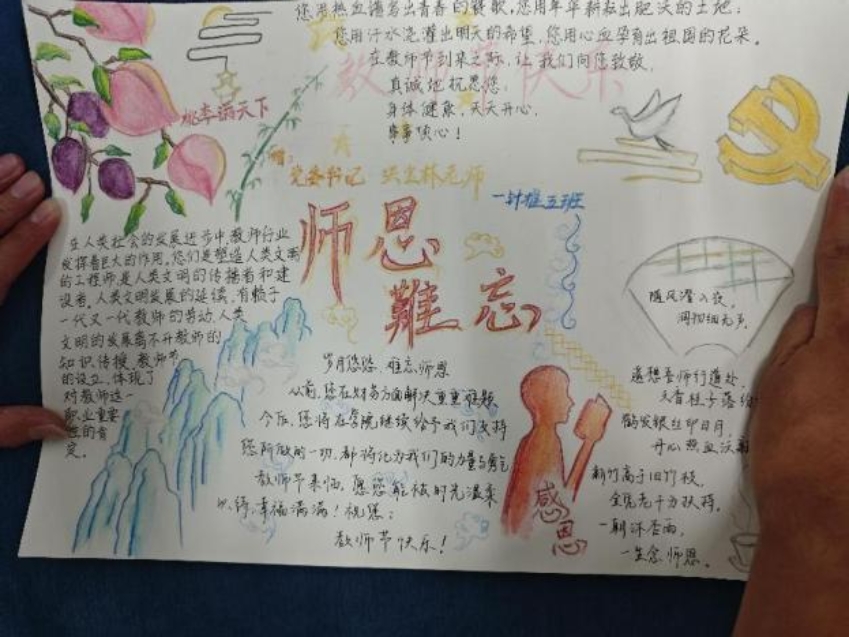 您用热血谱写出青春的赞歌,您用年华耕耘出肥沃的土地;
您用汗水浇灌出明天的希望,您用心血孕育出祖国的花朵。
在教师节到来之际,让我们向您致敬,
真诚地祝愿您:
身体健康,天天开心,
事事顺心!
教师节快乐
桃李满天下
赠:
党委书记 洪宝林老师
一针推五班
师恩
難忘
在人类社会的发展进步中,教师行业
发挥着巨大的作用,您们是塑造人类文明
的工程师,是人类文明的传播者和建
设者。人类文明发展的延续,有赖于
一代又一代教师的劳动,人类
文明的发展离不开教师的
知识传授,教师节
的设立,体现了
对教师这一
职业重要
性的肯
定。
岁月悠悠,难忘师恩
从前,您在财务方面解决重重难题
今后,您将在学院继续给予我们支持
您所做的一切,都将化为我们的力量与勇气
教师节来临,愿您能被时光温柔
以待,幸福满满!祝您:
教师节快乐!
感
恩
随风潜入夜,
润物细无声
遥想吾师行道处,
天香桂子落纷
鹤发银丝印日月,
丹心热血沃新
新竹高于旧竹枝,
全凭老干为扶持。
一朝沐杏雨,
一生念师恩。